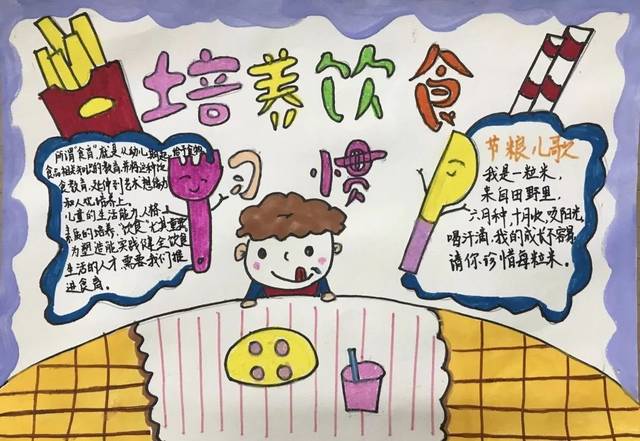 培养饮食
习惯
所谓"食育"就是从幼儿期起,给予食物、
食品相关知识的教育,并将这种饮
食教育,延伸到艺术想
和人
儿童的生活能力、人格上
的培养,"饮食"尤其重要
为塑造能实践健全饮食
生活的人才,需要我们推
进食育。
节粮儿歌
我是一粒米,
来自田野里。
六月种,十月收,咬阳光,
喝汗滴,我的成长不容易,
请你珍惜每粒米。